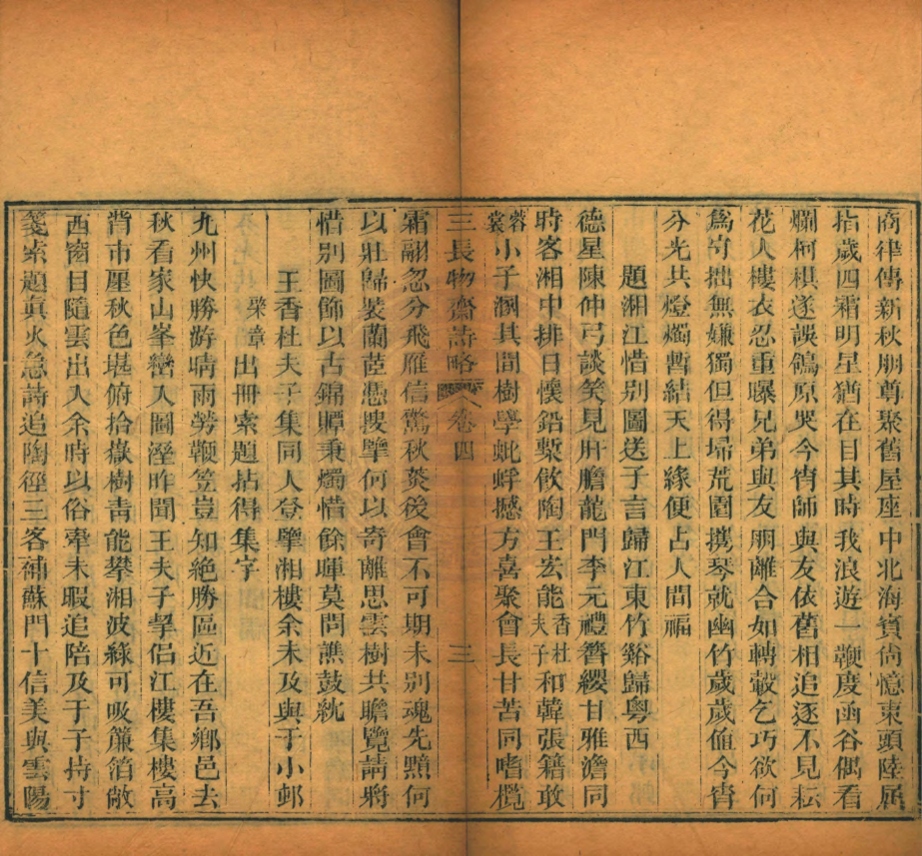 商律傳新秋朋尊聚舊屋座中北海賓尙憶東頭陸屈
指歲四霜明星猶在目其時我浪遊一鞭度函谷偶看
爛柯棋遂誤鴒原哭今宵師與友依舊相追逐不見耘
花人樓衣忍重曝兄弟與友朋離合如轉轂乞巧欲何
爲守拙無嫌獨但得埽荒園攜琴就幽竹歲歲値今宵
分光共燈燭暫結天上緣便占人間福
題湘江惜别圖送子言歸江東竹谿歸粤西
德星陳仲弓談笑見肝膽龍門李元禮簪纓甘雅澹同
時客湘中排日懷鉛槧飲陶王玄能香杜夫子和韓張籍敢
蓉裳小子溷其間樹學蚍蜉撼方喜聚會長甘苦同嗜欖
三長物齋詩略 卷四 三
霜翮忽分飛雁信驚秋菼後會不可期未别魂先黯何
以壯歸裝蘭茝憑搜擥何以寄離思雲樹共瞻覽請將
惜别圖飾以古錦贉秉燭惜餘暉莫問譙鼓紞
王香杜夫子集同人登擥湘樓余未及與于小邨
槃章出冊索題拈得集字
九州快勝游晴雨勞鞭笠豈知絶勝區近在吾鄉邑去
秋看家山峯巒入圖溼昨聞王夫子挈侣江樓集樓高
背市壓秋色堪俯拾嶽樹靑能攀湘波綠可吸簾箔敞
西窗目隨雲出入余時以俗牽未暇追陪及于子持寸
箋索題眞火急詩追陶徑三客補蘇門十信美與雲陽